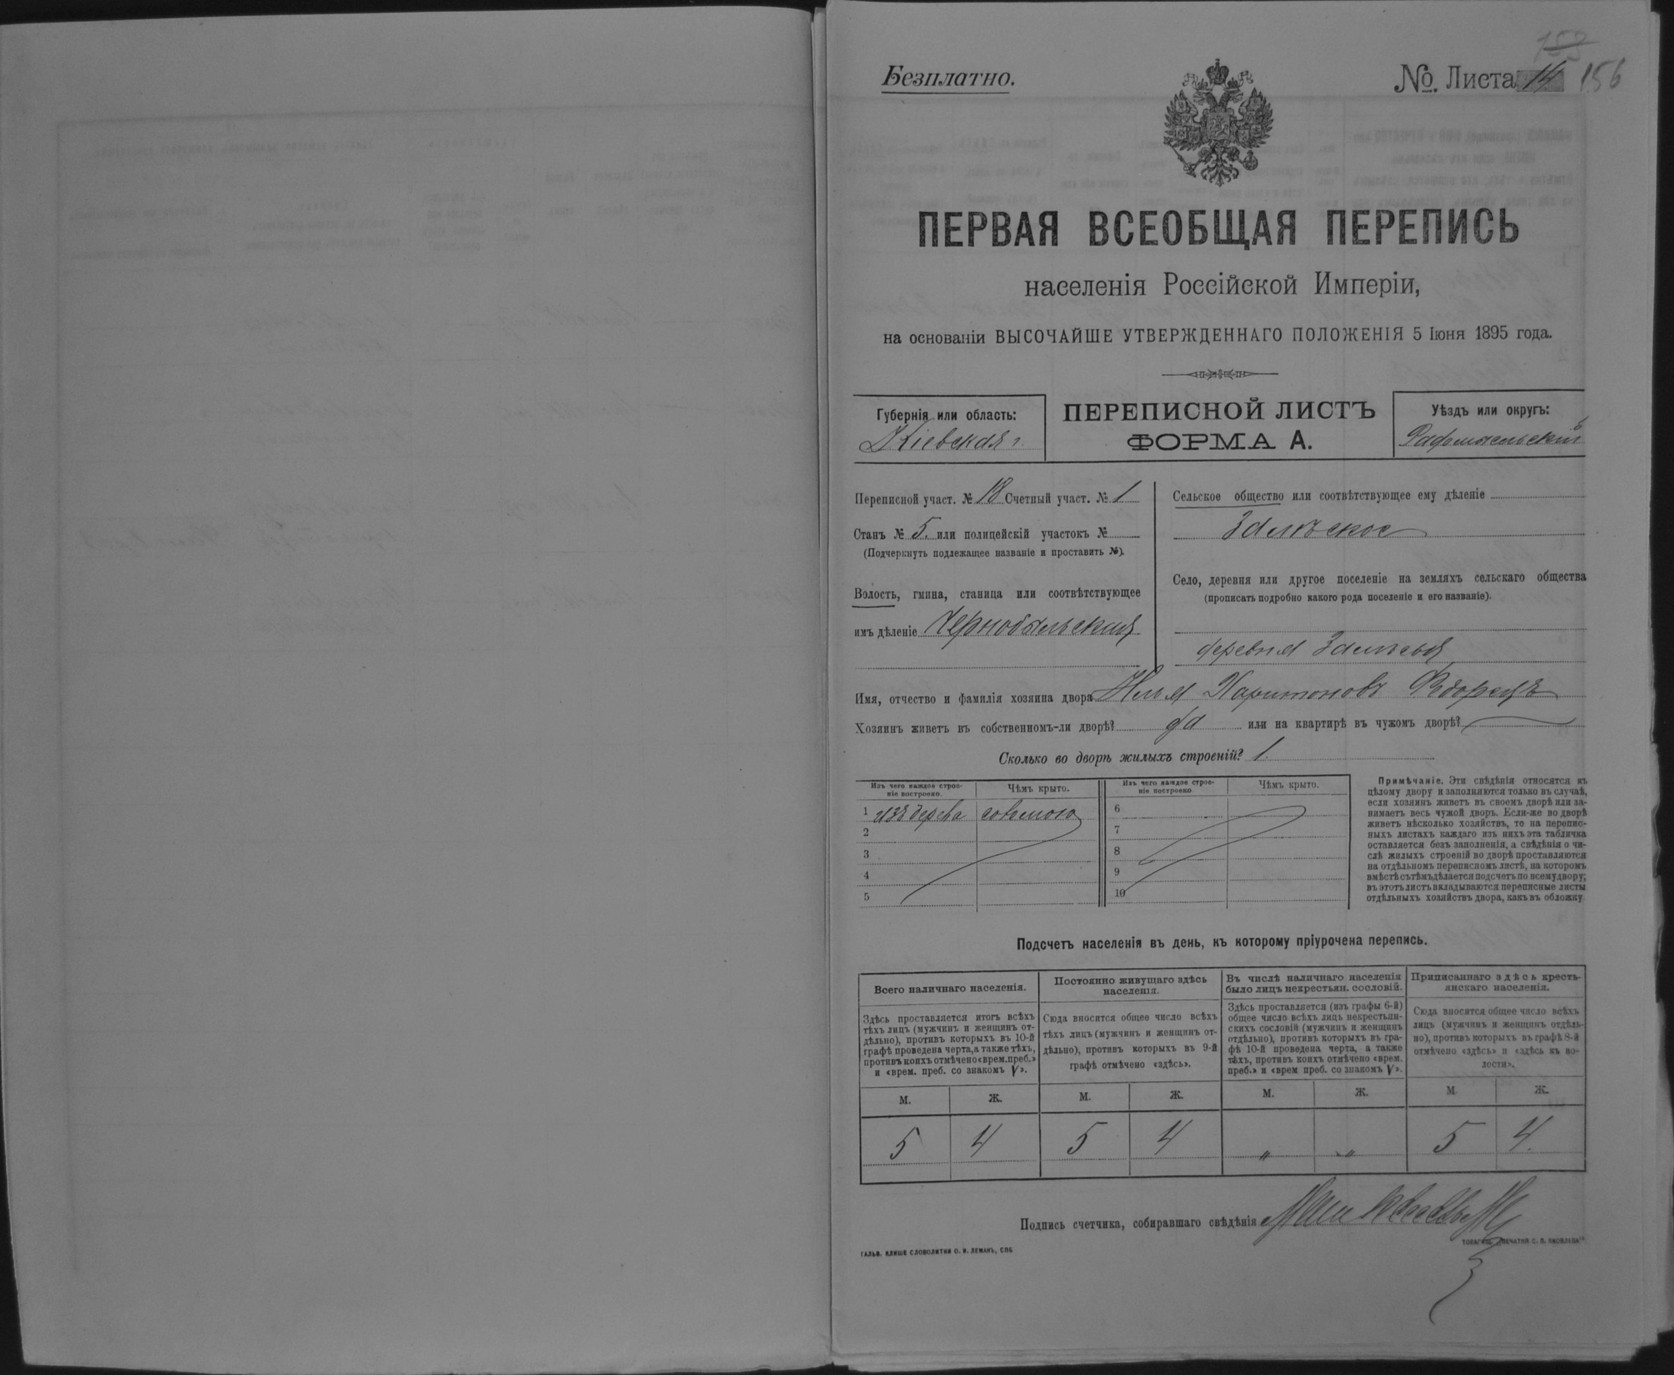 Безплатно.
№ Листа 14 156
ПЕРВАЯ ВСЕОБЩАЯ ПЕРЕПИСЬ
населенія Россійской Имперіи,
на основаніи ВЫСОЧАЙШЕ УТВЕРЖДЕННАГО ПОЛОЖЕНІЯ 5 Іюня 1895 года.
Губернія или область:
Кіевская г.
ПЕРЕПИСНОЙ ЛИСТЪ
ФОРМА А.
Уѣздъ или округъ:
Переписной участ. № 18 Счетный участ. № 1
Станъ № 5. или полицейскій участокъ №
(Подчеркнуть подлежащее названіе и проставить №).
Волость, гмина, станица или соотвѣтствующее
имъ дѣленіе Чернобыльская
Сельское общество или соотвѣтствующее ему дѣленіе
Залѣское
Село, деревня или другое поселеніе на земляхъ сельскаго общества
(прописать подробно какого рода поселеніе и его названіе).
деревня Залѣсья
Имя, отчество и фамилія хозяина двора Илья Харитоновъ Ѳедорецъ
Хозяинъ живетъ въ собственномъ-ли дворѣ? да или на квартирѣ въ чужомъ дворѣ?
Сколько во дворѣ жилыхъ строеній? 1.
Изъ чего каждое строе-
ніе построено.
Чѣмъ крыто.
Изъ чего каждое строе-
ніе построено.
Чѣмъ крыто.
1 изъ дерева соломою
2
3
4
5
6
7
8
9
10
Примѣчаніе. Эти свѣдѣнія относятся къ
цѣлому двору и заполняются только въ случаѣ,
если хозяинъ живетъ въ своемъ дворѣ или за-
нимаетъ весь чужой дворъ. Если-же во дворѣ
живетъ нѣсколько хозяйствъ, то на перепис-
ныхъ листахъ каждаго изъ нихъ эта табличка
оставляется безъ заполненія, а свѣдѣнія о чи-
слѣ жилыхъ строеній во дворѣ проставляются
на отдѣльномъ переписномъ листѣ, на которомъ
вмѣстѣ съ тѣмъ дѣлается подсчетъ по всему двору;
въ этотъ листъ вкладываются переписные листы
отдѣльныхъ хозяйствъ двора, какъ въ обложку.
Подсчетъ населенія въ день, къ которому пріурочена перепись.
Всего наличнаго населенія.
Здѣсь проставляется итогъ всѣхъ
тѣхъ лицъ (мужчинъ и женщинъ от-
дѣльно), противъ которыхъ въ 10-й
графѣ проведена черта, а также тѣхъ,
противъ коихъ отмѣчено «врем. преб.»
и «врем. преб. со знакомъ V».
Постоянно живущаго здѣсь
населенія.
Сюда вносится общее число всѣхъ
тѣхъ лицъ (мужчинъ и женщинъ от-
дѣльно), противъ которыхъ въ 9-й
графѣ отмѣчено «здѣсь».
Въ числѣ наличнаго населенія
было лицъ некрестьян. сословій.
Здѣсь проставляется (изъ графы 6-й)
общее число всѣхъ лицъ некрестьян-
скихъ сословій (мужчинъ и женщинъ
отдѣльно), противъ которыхъ въ гра-
фѣ 10-й проведена черта, а также
тѣхъ, противъ коихъ отмѣчено «врем.
преб.» и «врем преб. со знакомъ V».
Приписаннаго здѣсь кресть-
янскаго населенія.
Сюда вносится общее число всѣхъ
лицъ (мужчинъ и женщинъ отдѣль-
но), противъ которыхъ въ графѣ 8-й
отмѣчено «здѣсь» и «здѣсь въ во-
лости».
М. Ж. М. Ж. М. Ж. М. Ж.
5 4 5 4 „ „ 5 4
Подпись счетчика, собиравшаго свѣдѣнія
ГАЛЬВ. КЛИШЕ СЛОВОЛИТНИ О. И. ЛЕМАНЪ, СПБ